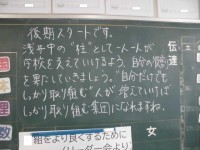 後期スタートです。
浅井中の"柱"として一人一人が
学校を支えていけるよう、自分の役
を果たしていきましょう。"自分だけでも
しっかり取り組む人"が増えていけば
しっかり取り組む集団になれますね。
伝達
国
本
理
数
女
組をより良くするために
リーダー会より